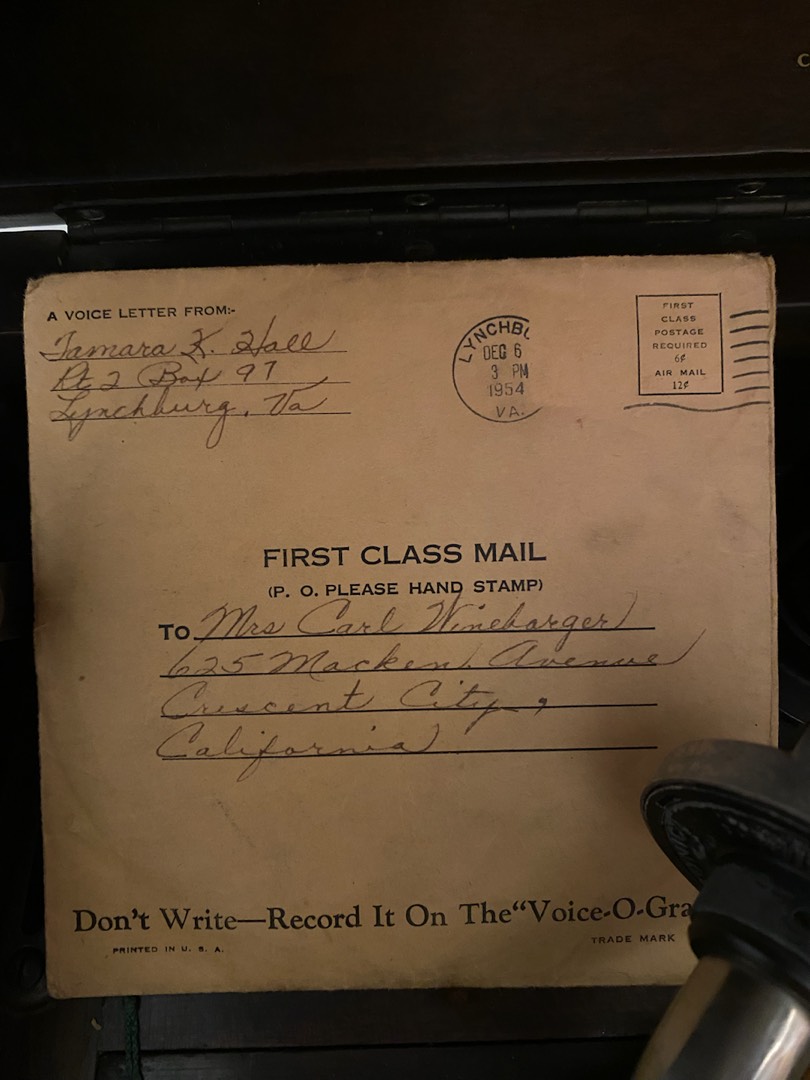 A VOICE LETTER FROM:-
Tamara K. Hall
Rt 2 Box 97
Lynchburg, Va
LYNCHBU
DEC 6
3 PM
1954
VA.
FIRST
CLASS
POSTAGE
REQUIRED
6¢
AIR MAIL
12¢
FIRST CLASS MAIL
(P. O. PLEASE HAND STAMP)
To Mrs Carl Winebarger
625 Macken Avenue
Crescent City,
California
Don't Write—Record It On The "Voice-O-Gra
PRINTED IN U. S. A.
TRADE MARK